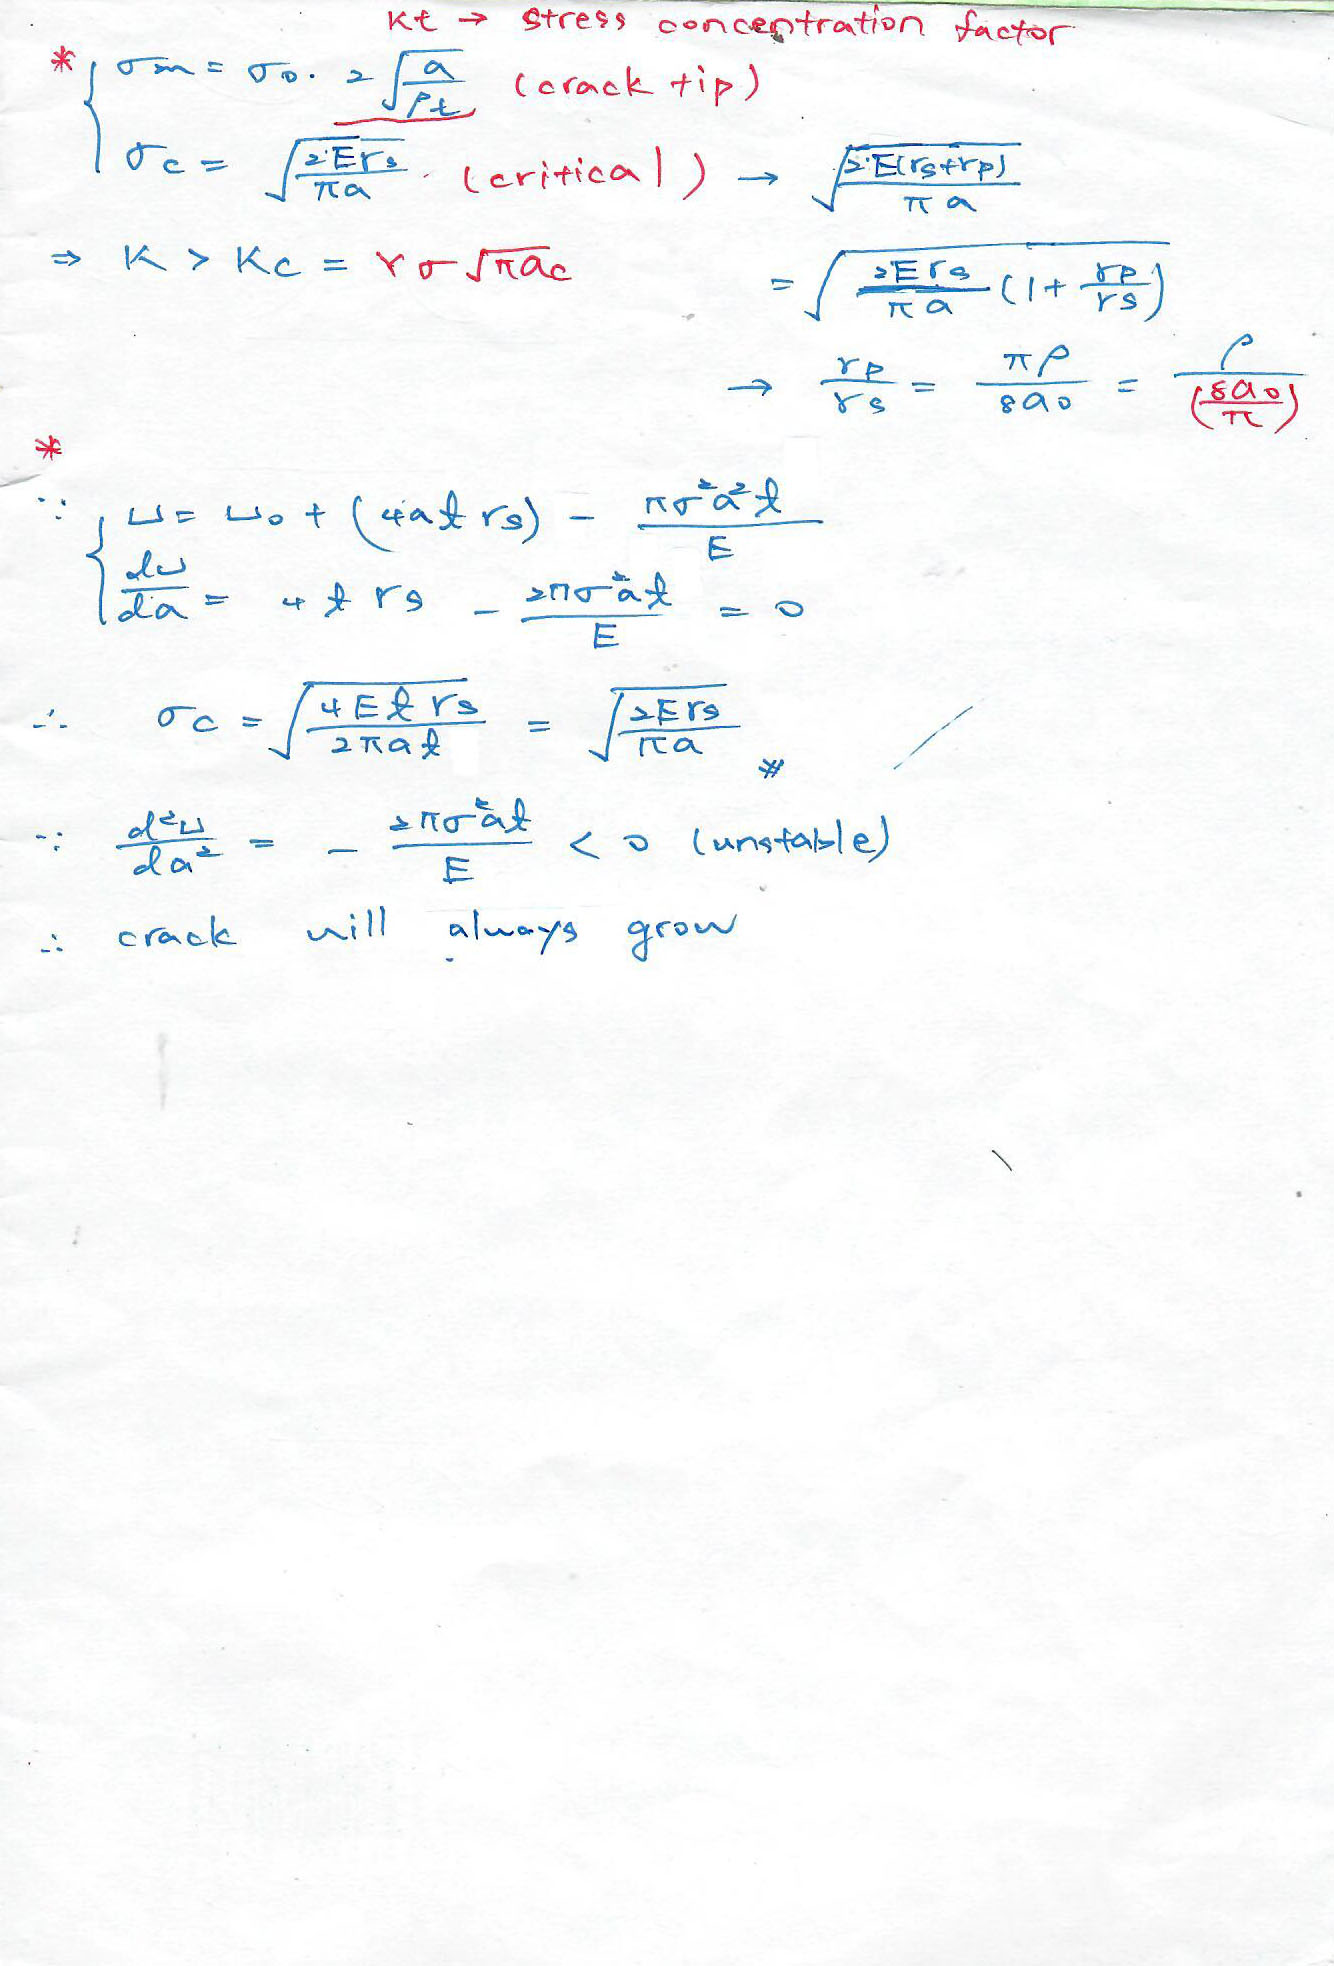 Kt → stress concentration factor
* { σm = σ0 · 2 √(a/ρt) (crack tip)
σc = √(2Ers/πa) . (critical) → √(2E(rs+rp)/πa)
⇒ K > Kc = γσ√πac = √(2Ers/πa (1 + rp/rs))
→ rp/rs = πρ/8a0 = ρ/(8a0/π)
*
∵ { U = U0 + (4at rs) - πσ²a²t/E
dU/da = 4 t rs - 2πσ²at/E = 0
∴ σc = √(4E t rs/2πat) = √(2Ers/πa) #
∵ d²U/da² = - 2πσ²at/E < 0 (unstable)
∴ crack will always grow